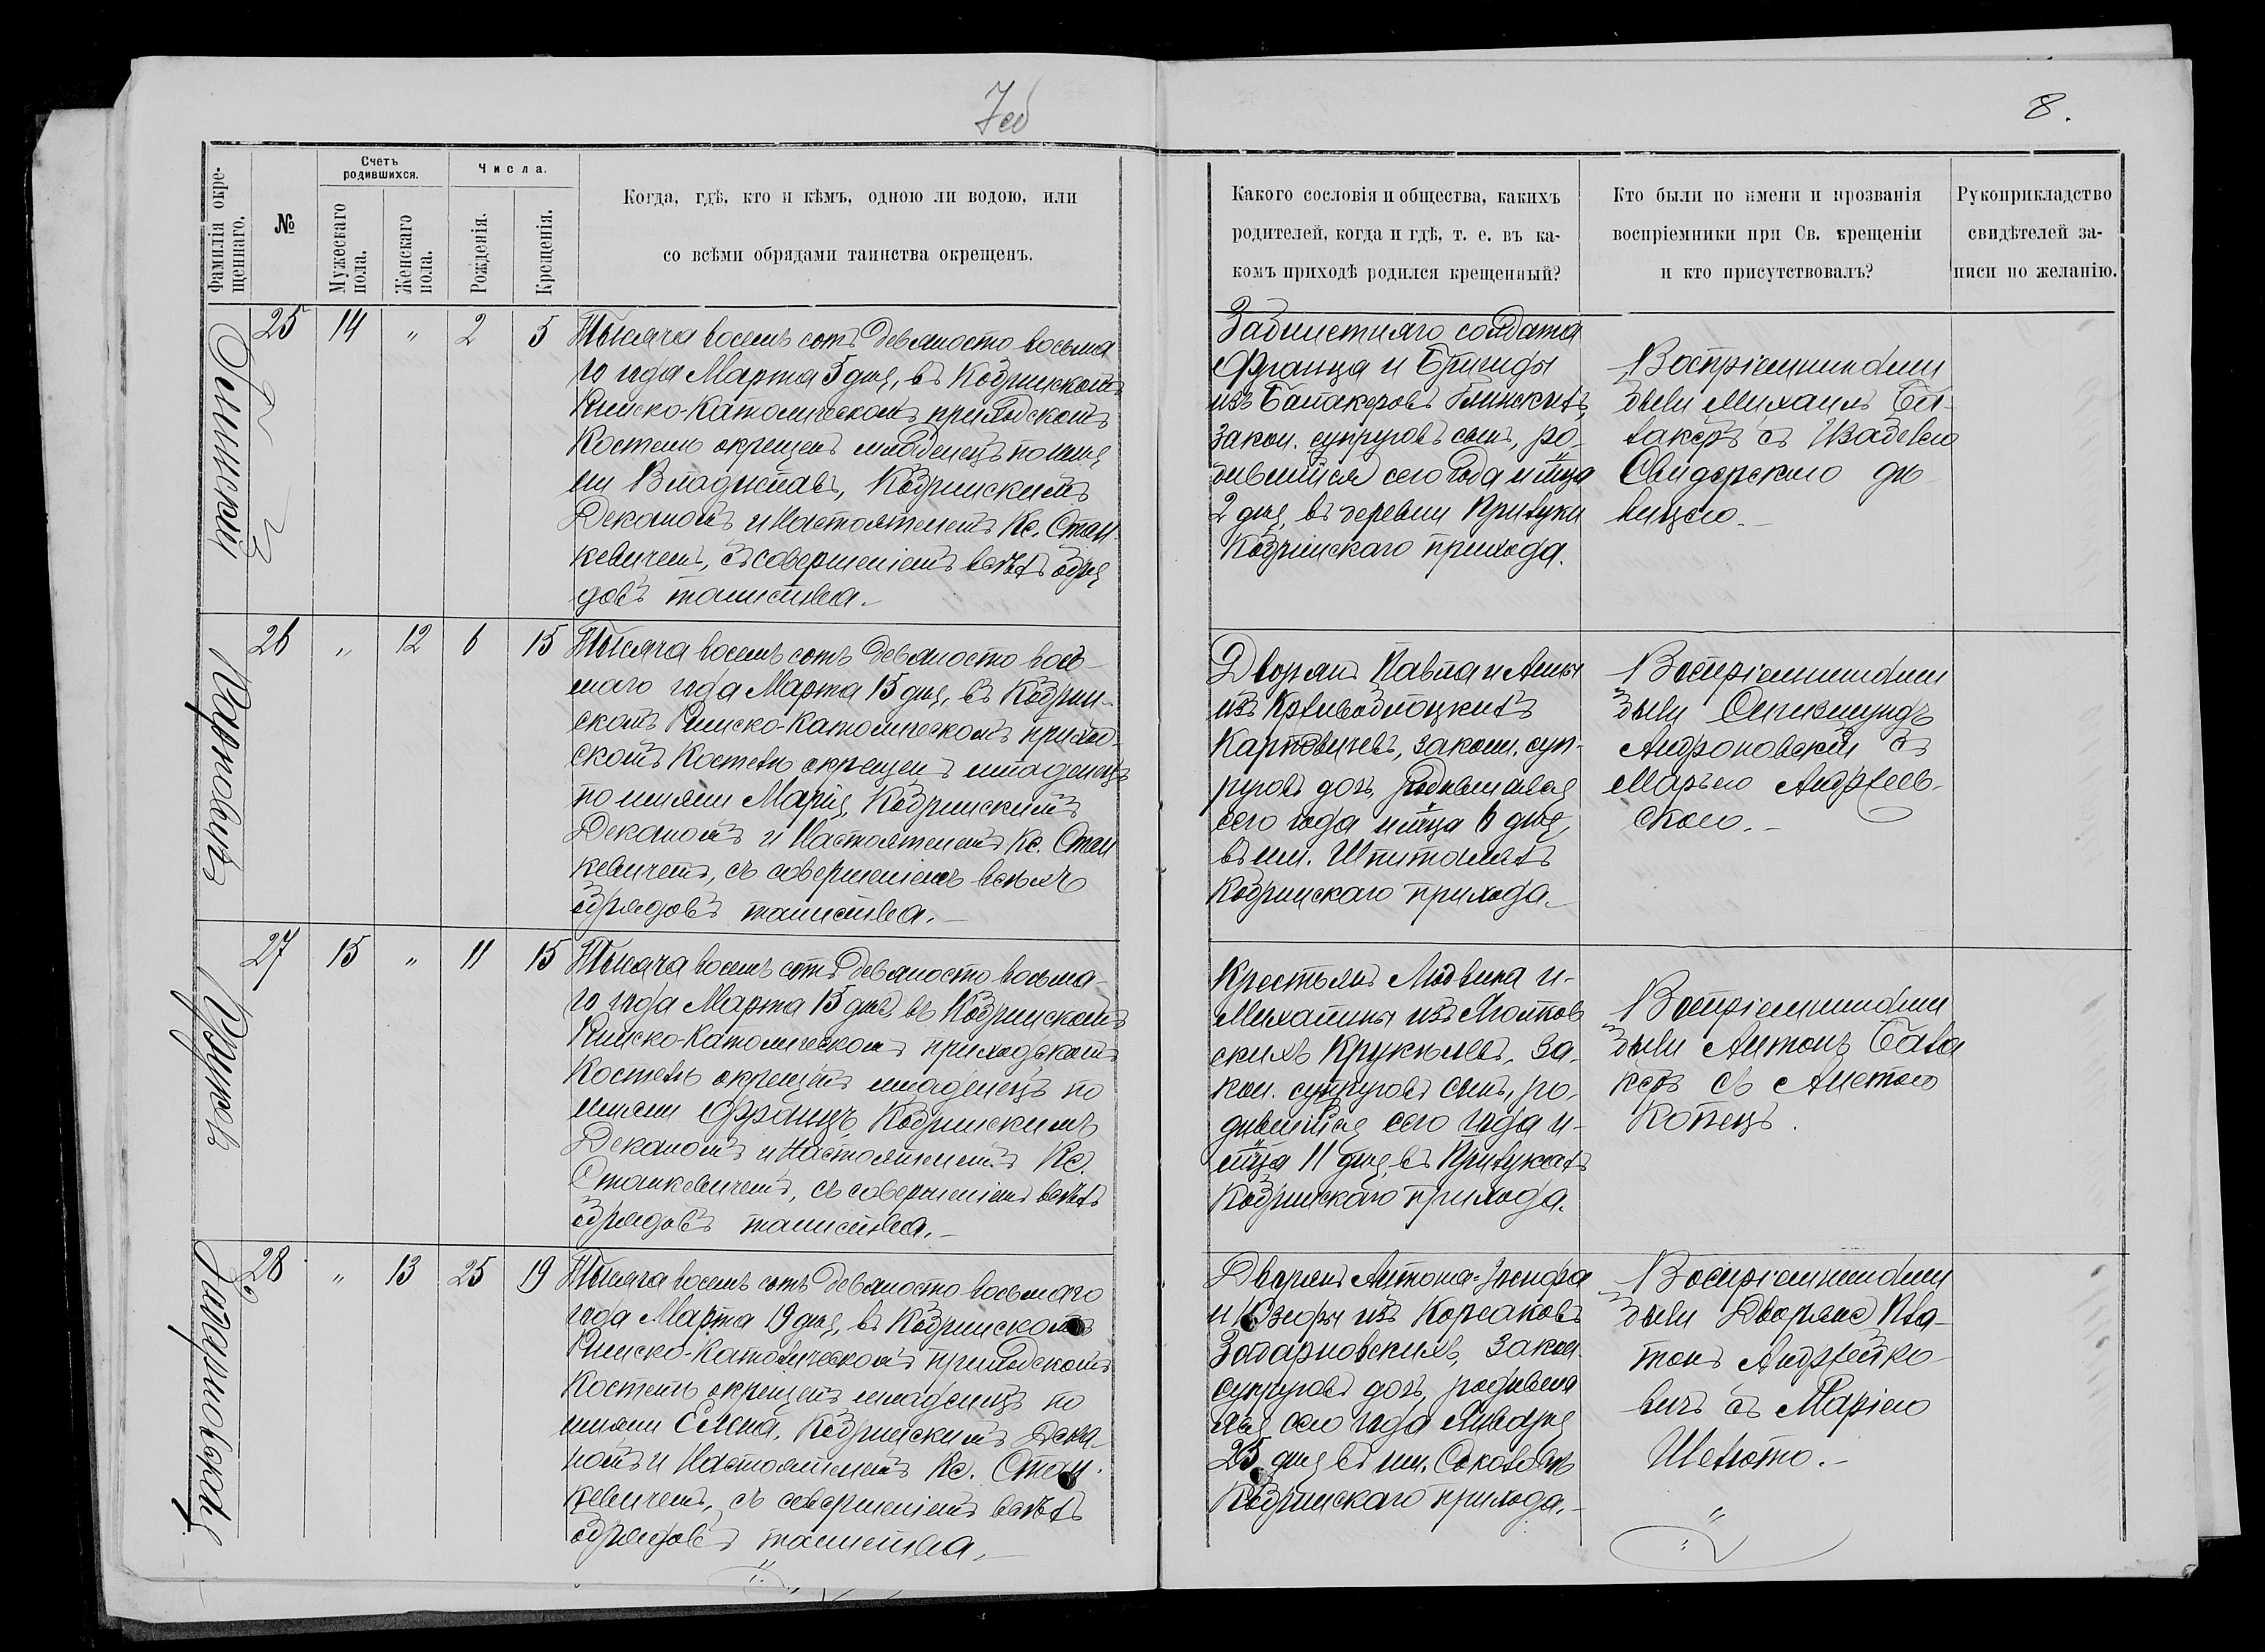 7об
8.
Фамилія окрещеннаго.
№
Счетъ родившихся.
Мужескаго пола.
Женскаго пола.
Числа.
Рожденія.
Крещенія.
Когда, гдѣ, кто и кѣмъ, одною ли водою, или
со всѣми обрядами таинства окрещенъ.
Какого сословія и общества, какихъ
родителей, когда и гдѣ, т. е. въ ка-
комъ приходѣ родился крещенный?
Кто были по имени и прозванія
воспріемники при Св. крещеніи
и кто присутствовалъ?
Рукоприкладство
свидѣтелей за-
писи по желанію.
Глинскій
25 14 „ 2 5
Тысяча восемь сотъ девяносто восьма
го года Марта 5 дня, въ Кобринскомъ
Римско-Католическомъ приходскомъ
Костелѣ окрещенъ младенецъ по имя
ни Владиславъ, Кобринскимъ
Деканомъ и Настоятелемъ Кс. Стан
кевичемъ, съ совершеніемъ всѣхъ обря
довъ таинства.
Запаснаго солдата
Франца и Бригиды
изъ Балакеровъ Глинскихъ
закон. супруговъ сынъ, ро-
дившійся сего года и м-ца
2 дня, въ деревни Прилуки
Кобринскаго прихода.
Воспріемниками
были Михаилъ Ба-
лакеръ съ Изабелою
Свидерскою дѣ-
вицею.
Карповичъ
26 „ 12 6 15
Тысяча восемь сотъ девяносто вось-
маго года Марта 15 дня, въ Кобрин-
скомъ Римско-Католическомъ приход-
скомъ Костелѣ окрещенъ младенецъ
по имени Марія, Кобринскимъ
Деканомъ и Настоятелемъ Кс. Стан
кевичемъ, съ совершеніемъ всѣхъ
обрядовъ таинства.
Дворянъ Павла и Анны
изъ
Карповичевъ, закон. суп-
руговъ дочь, родившаяся
сего года и м-ца 6 дня,
въ им. Шпиталяхъ
Кобринскаго прихода.
Воспріемниками
были Сигизмундъ
Андроновскій съ
Марьею Андреев-
скою.
Крукель
27 15 „ 11 15
Тысяча восемь сотъ девяносто восьма-
го года Марта 15 дня, въ Кобринскомъ
Римско-Католическомъ приходскомъ
Костелѣ окрещенъ младенецъ по
имени Францъ, Кобринскимъ
Деканомъ и Настоятелемъ Кс.
Станкевичемъ, съ совершеніемъ всѣхъ
обрядовъ таинства.
Крестьянъ Людвика и
Михалины изъ
скихъ Крукелевъ, за-
кон. супруговъ сынъ, ро-
дившійся сего года и
м-ца 11 дня, въ Прилукахъ
Кобринскаго прихода.
Воспріемниками
были Антонъ Бала
керъ съ Анетою
Копецъ.
Забарновская
28 „ 13 25 19
Тысяча восемь сотъ девяносто восьмаго
года Марта 19 дня, въ Кобринскомъ
Римско-Католическомъ приходскомъ
Костелѣ окрещенъ младенецъ по
имени Елена, Кобринскимъ Дека-
номъ и Настоятелемъ Кс. Стан-
кевичемъ, съ совершеніемъ всѣхъ
обрядовъ таинства.
Дворянъ Антона-Іосифа
и Юзефы изъ Корсаковъ
Забарновскихъ, закон.
супруговъ дочь, родивша
яся сего года Января
25 дня въ им.
Кобринскаго прихода.
Воспріемниками
были Дворяне Пла-
тонъ Андрейко-
вичъ съ Маріею
Шелюто.